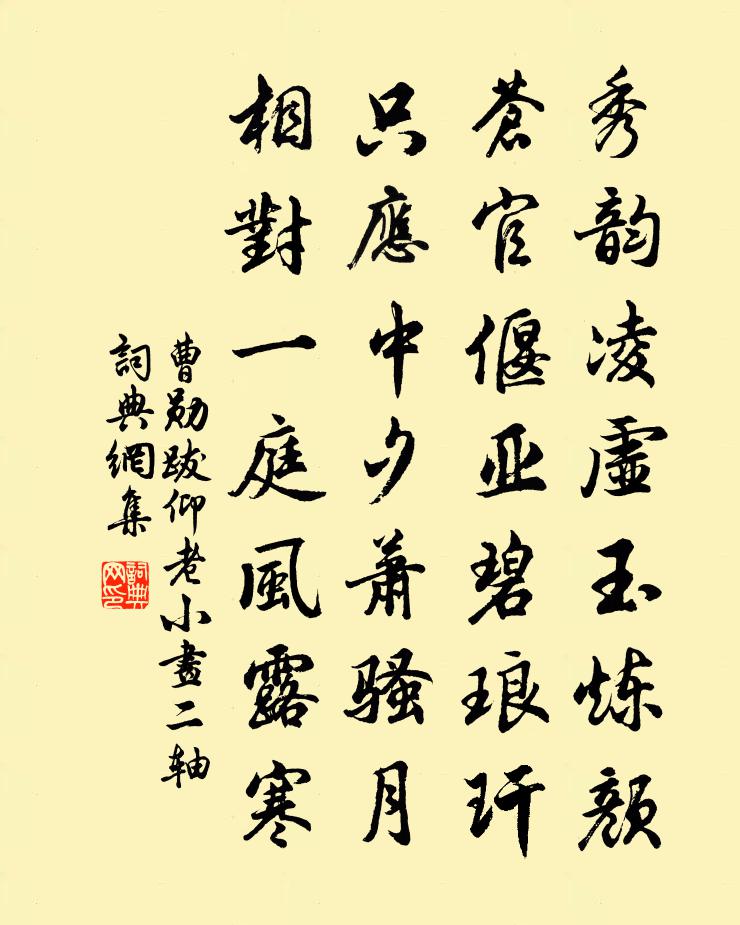 秀韵凌虚玉炼颜
苍官偃亚碧琅玕
只應中夕萧骚月
相對一庭風露寒
曹勋跋仰老小畫二轴
詞典網集
詞典网印